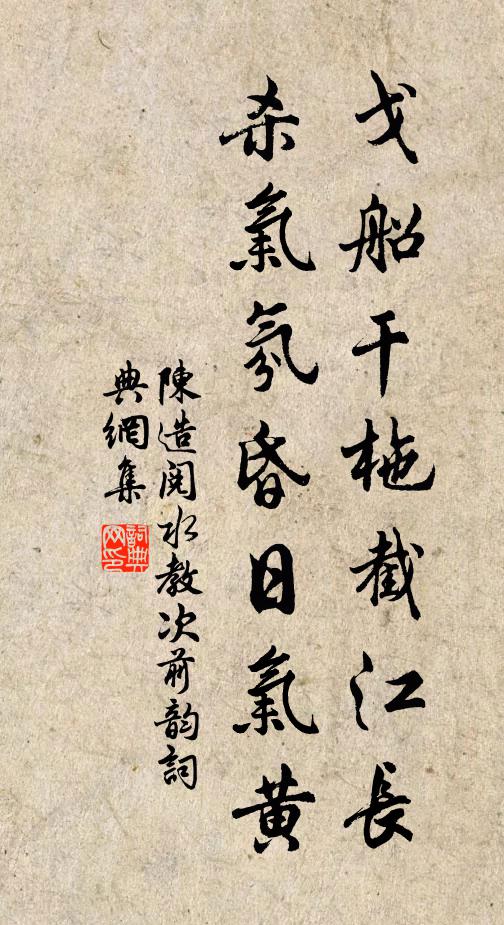 戈船干柂截江長
杀氣氛昏日氣黄
陳造閱水教次前韵詞
典網集
詞典
网印